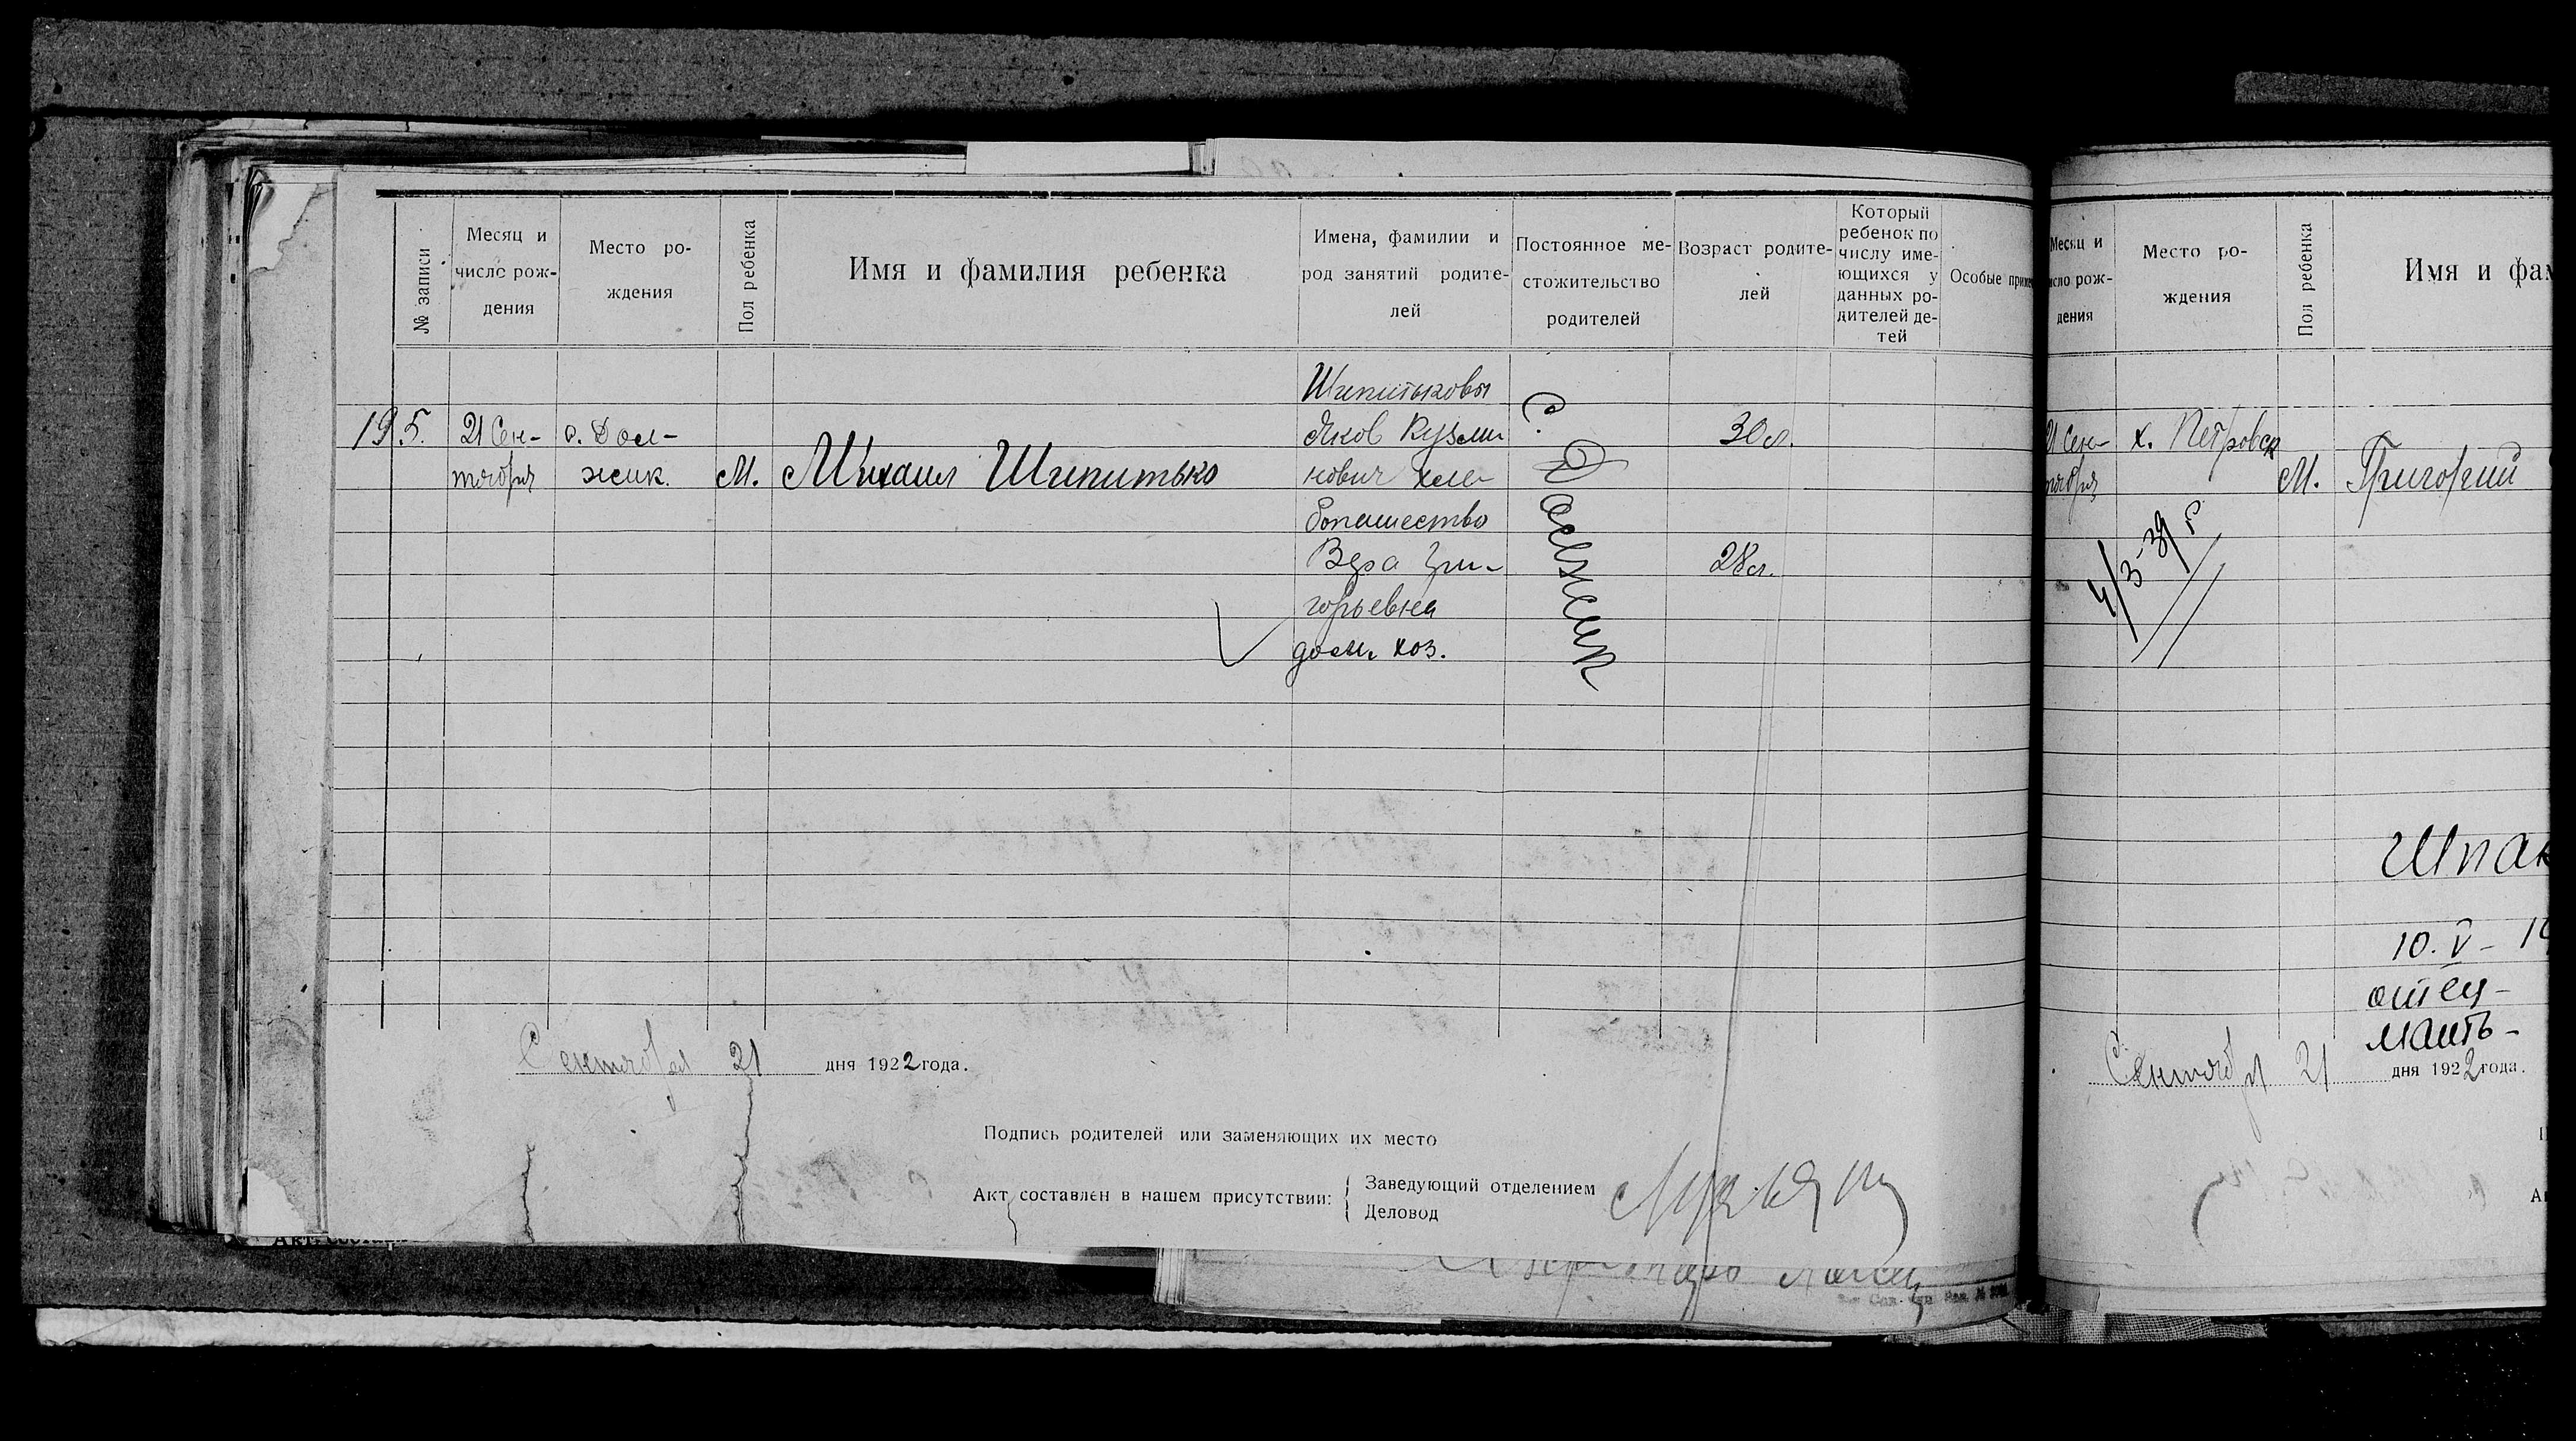 № записи
Месяц и
число рож-
дения
Место ро-
ждения
Пол ребенка
Имя и фамилия ребенка
Имена, фамилии и
род занятий родите-
лей
Постоянное ме-
стожительство
родителей
Возраст родите-
лей
Который
ребенок по
числу име-
ющихся у
данных ро-
дителей де-
тей
Особые приме
195.
21 Сен-
тября
с. Дол-
жик.
М.
Михаил Шипитько
Шипитьковы
Яков Кузьми
нович хле-
бопашество
Вера Гри-
горьевна
дом. хоз.
С. Должик
30 л.
28 л.
Сентября 21 дня 1922 года.
Подпись родителей или заменяющих их место
Акт составлен в нашем присутствии:
Заведующий отделением
Деловод
Месяц и
исло рож-
дения
Место ро-
ждения
Пол ребенка
Имя и фам
21 Сен-
тября
х. Петровск
М.
Григорий
4/3-39 г
Шпак
10. V - 19
отец -
мать -
Сентября 21 дня 1922 года.